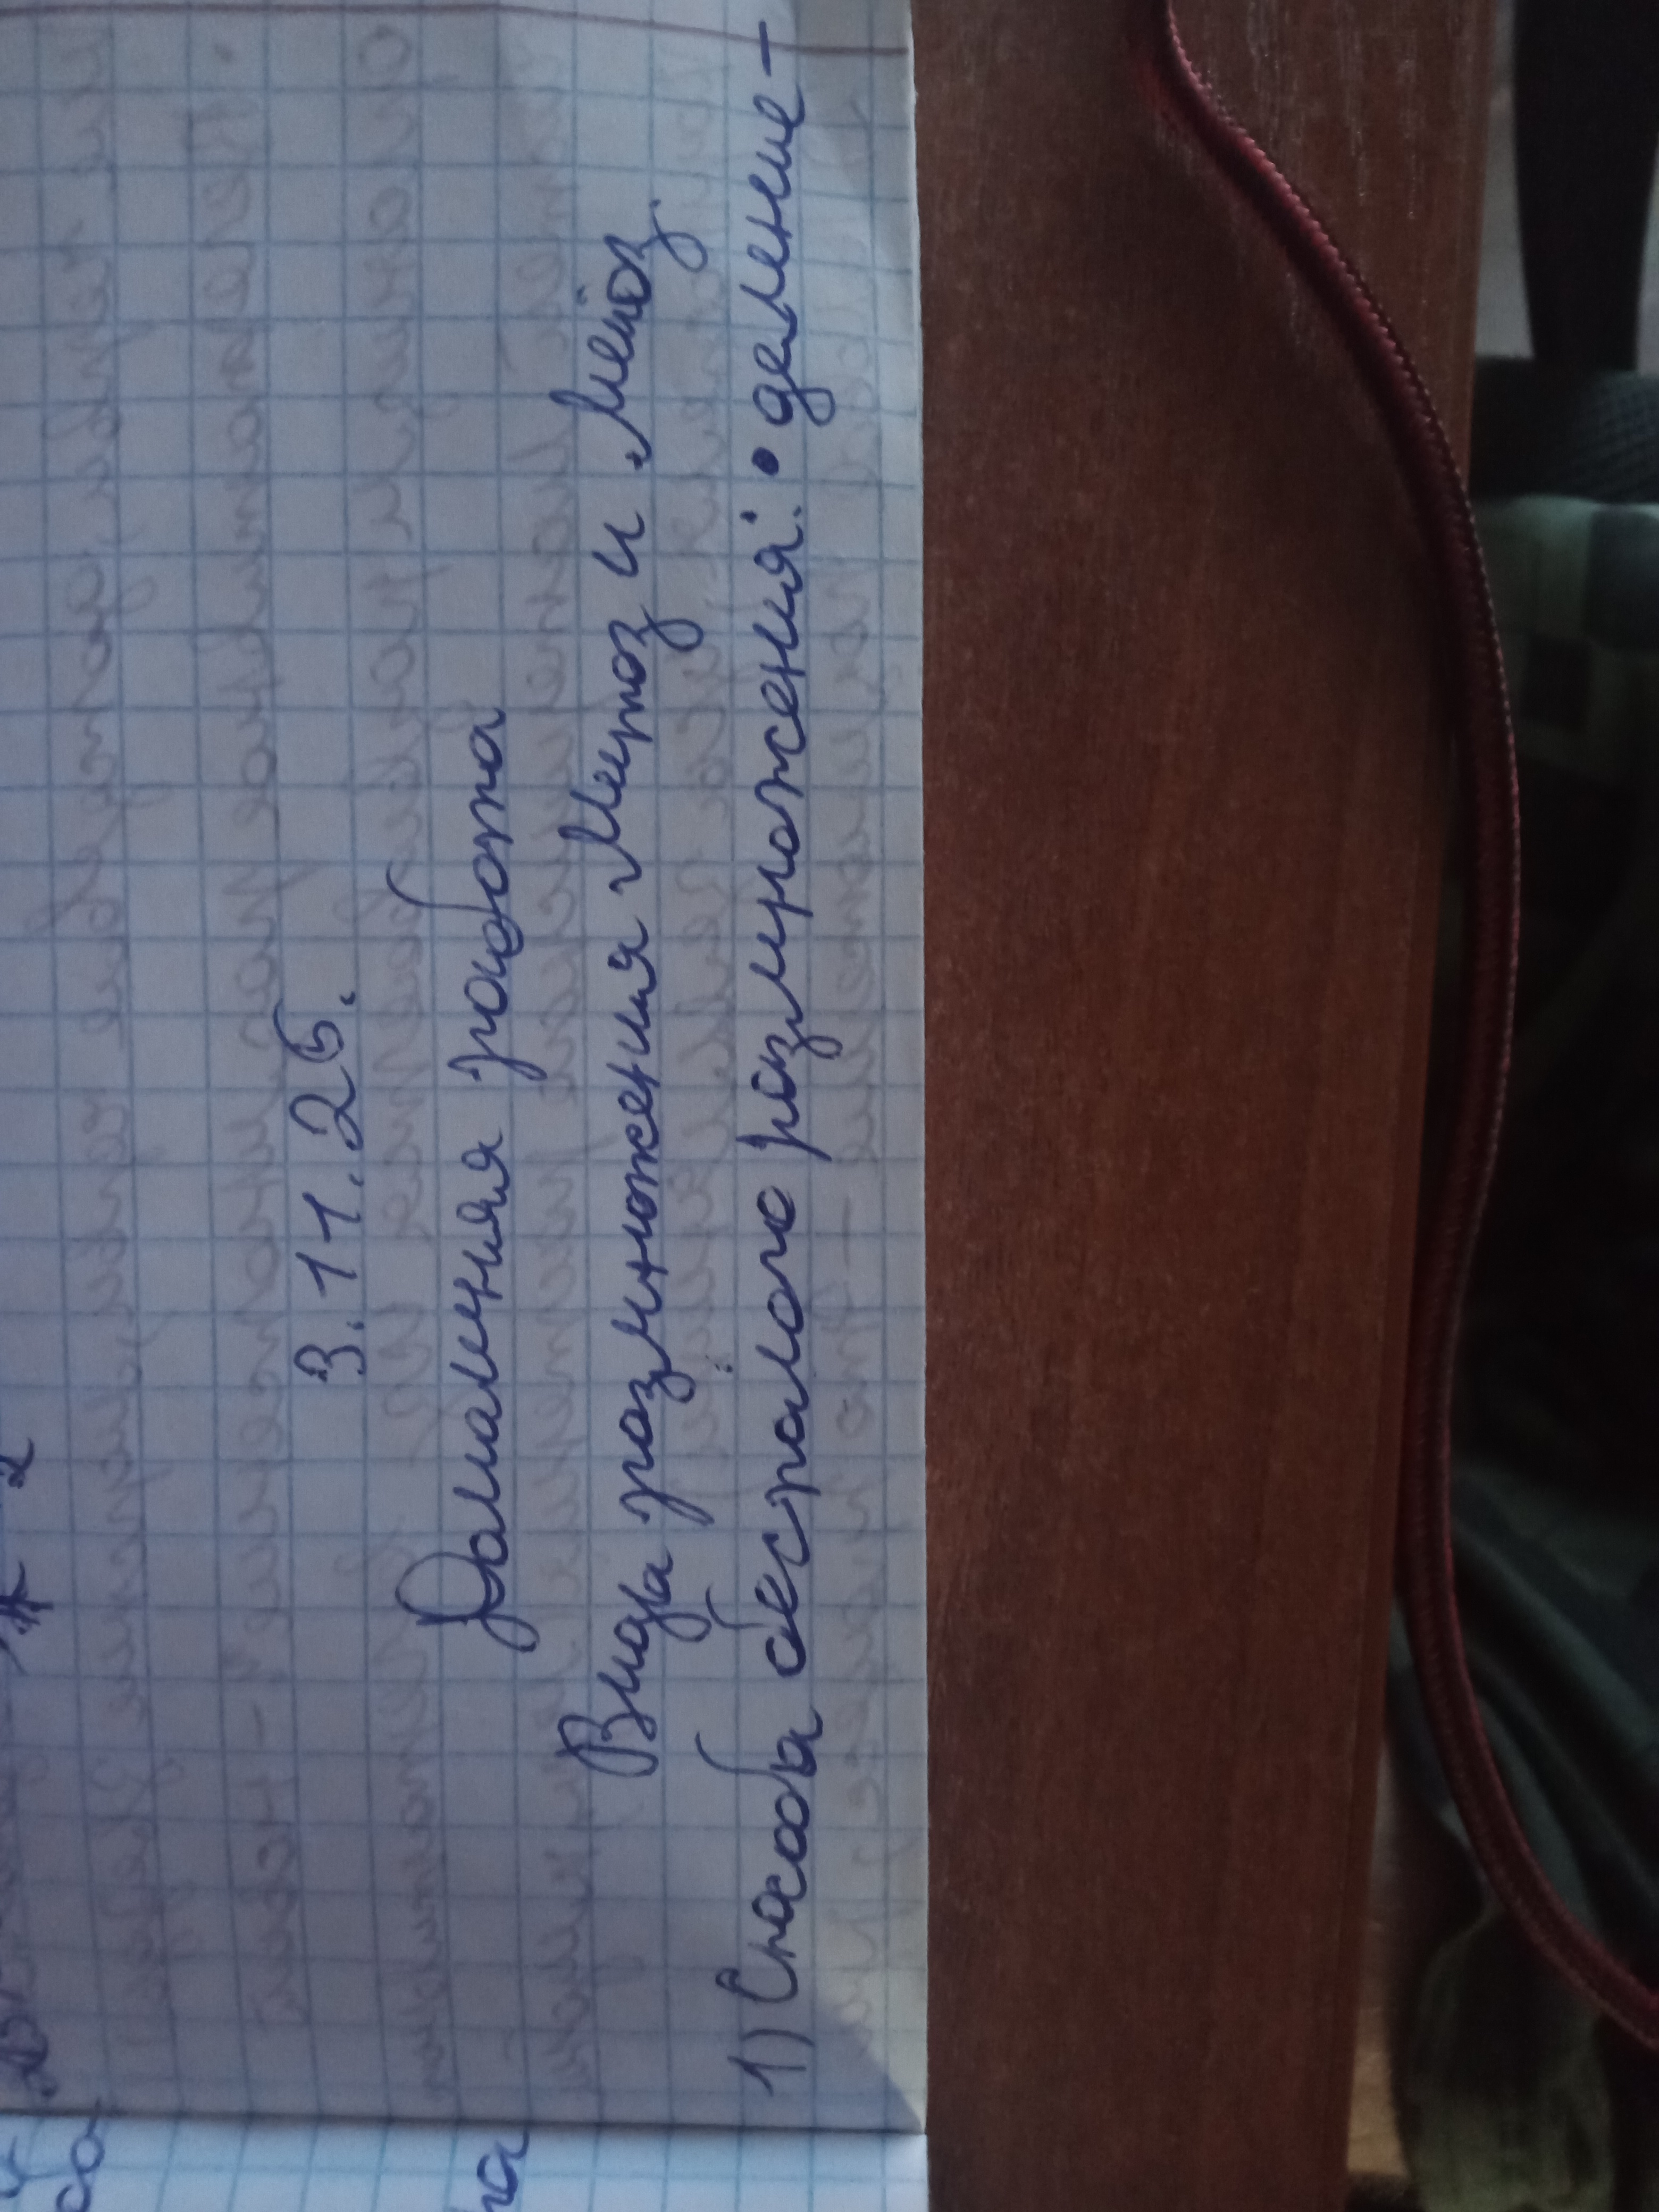 3.11.25.
Домашняя работа
Вида размножения Митоз и Мейоз
1) Способа бесполого размножения: • деление -